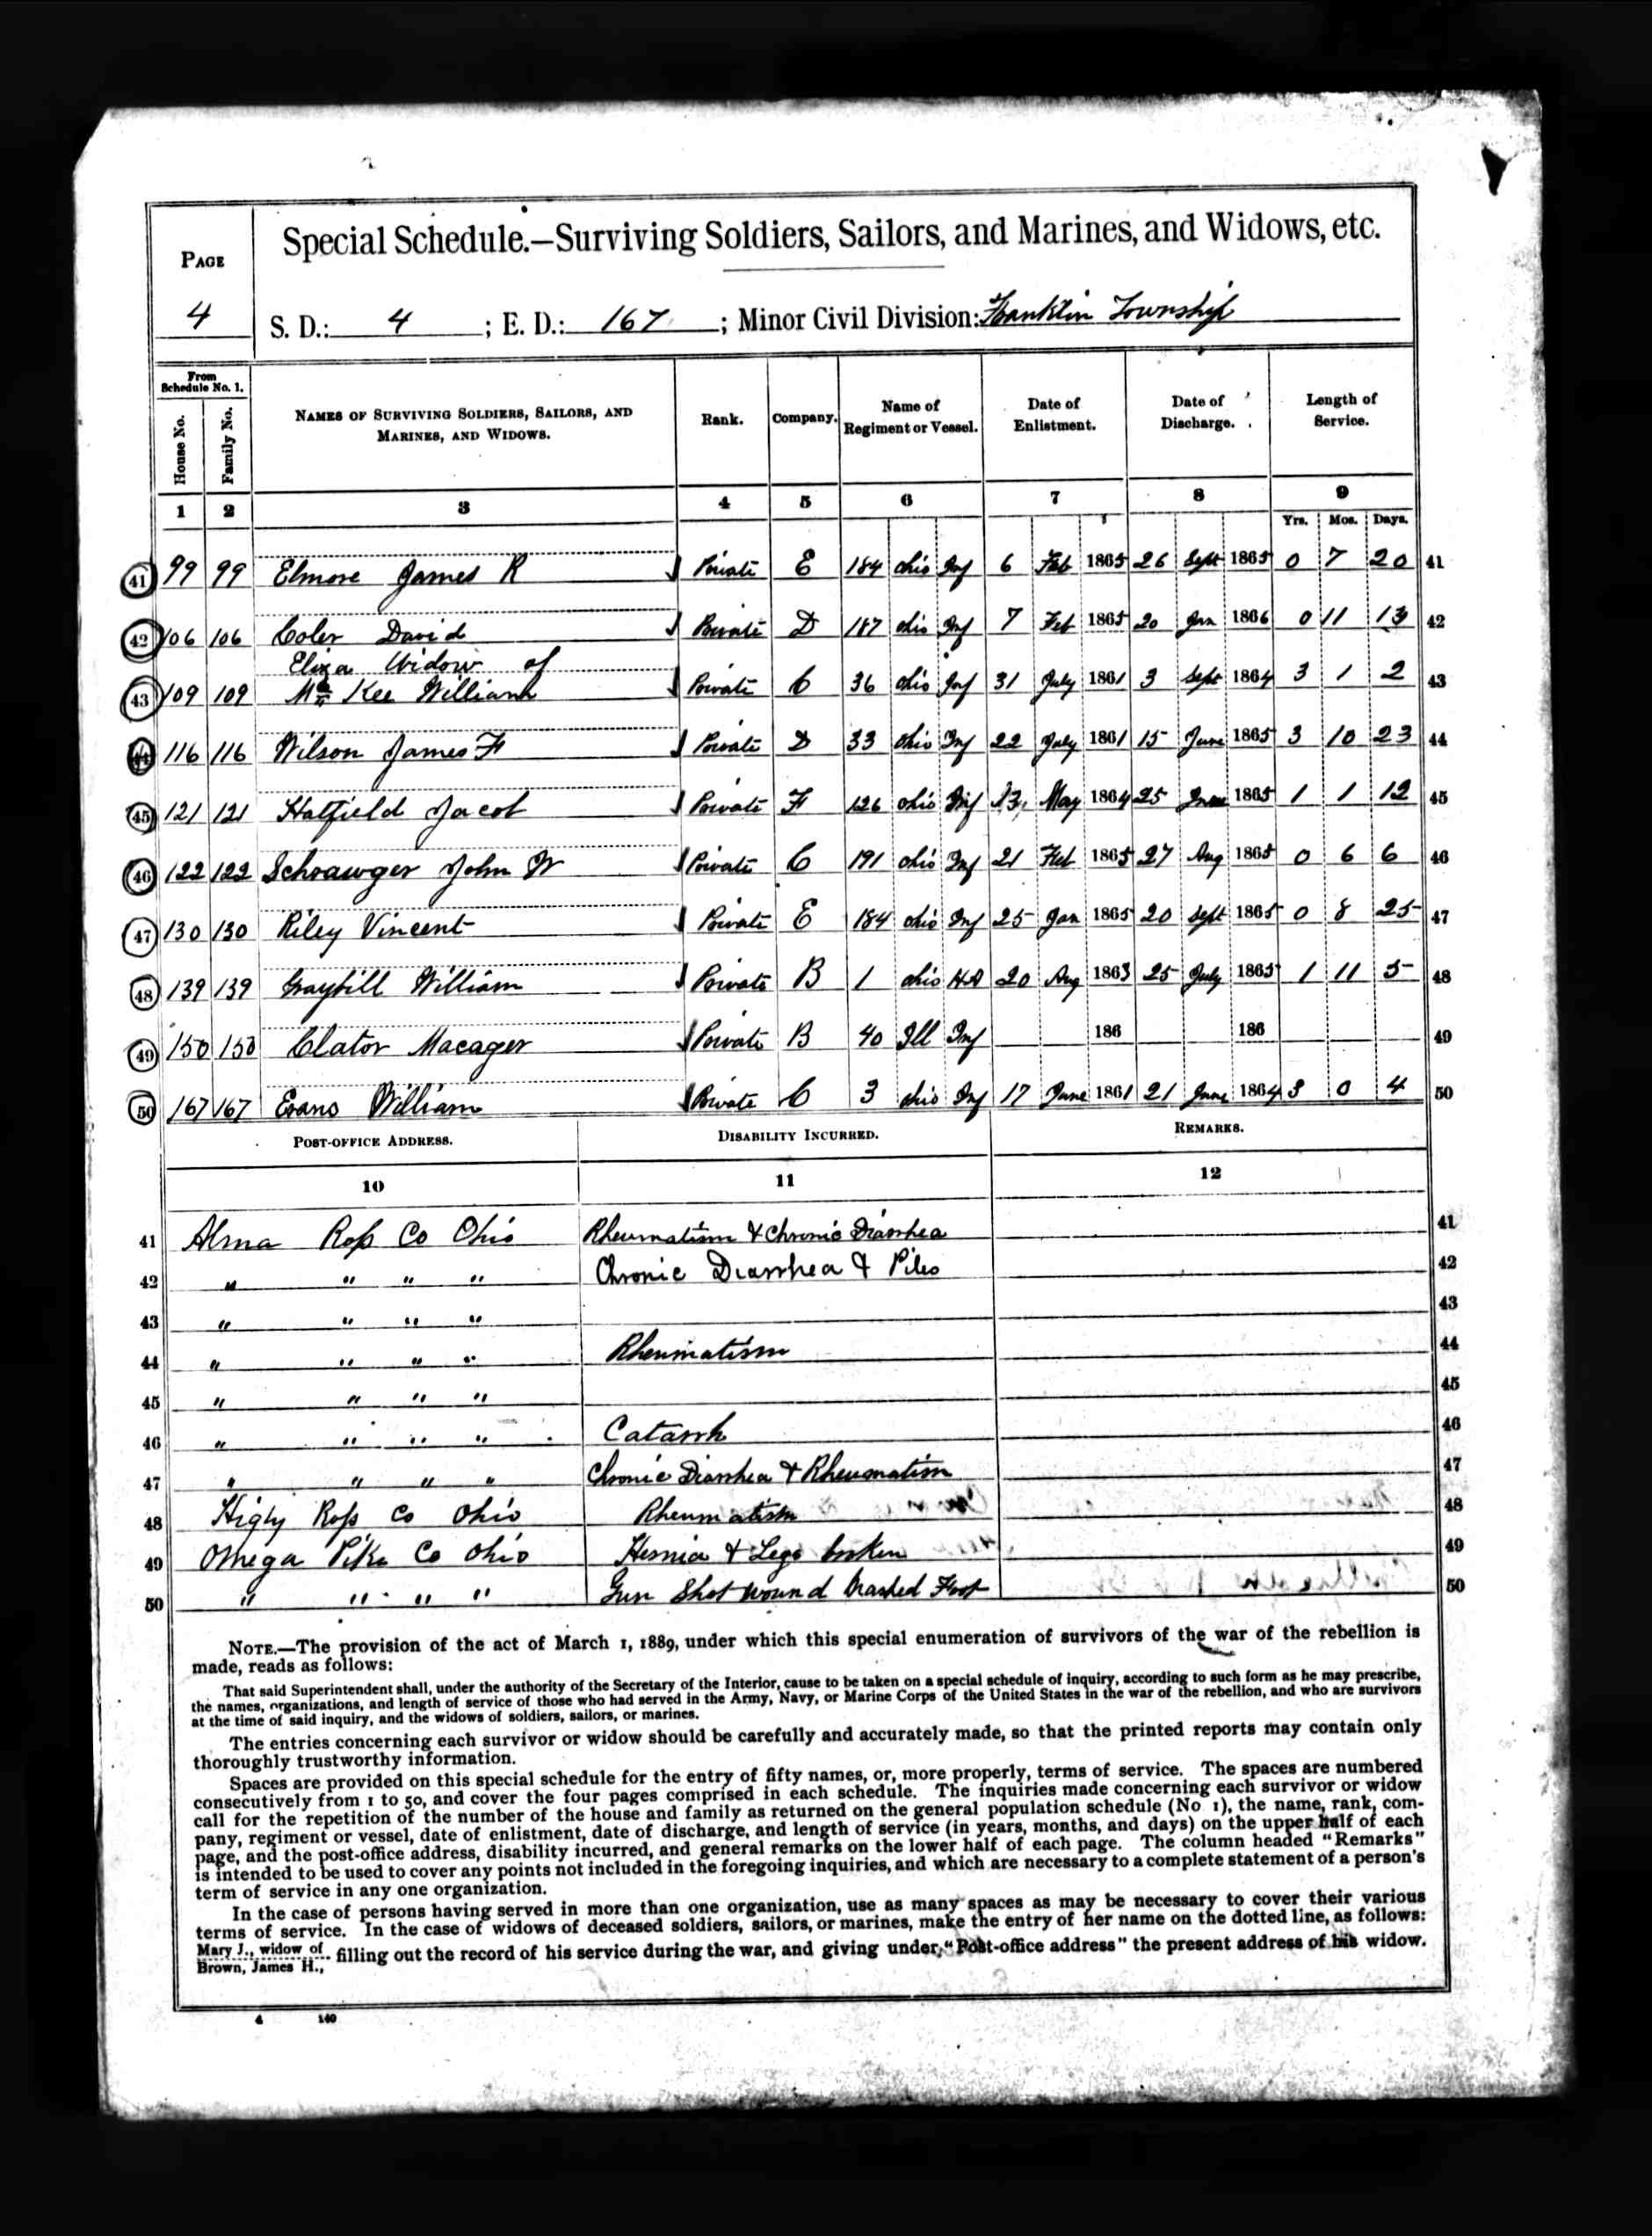 PAGE
4
Special Schedule.—Surviving Soldiers, Sailors, and Marines, and Widows, etc.
S. D.: 4 ; E. D.: 167 ; Minor Civil Division: Franklin Township
From Schedule No. 1.
House No. Family No. NAMES OF SURVIVING SOLDIERS, SAILORS, AND MARINES, AND WIDOWS. Rank. Company. Name of Regiment or Vessel. Date of Enlistment. Date of Discharge. Length of Service.
1 2 3 4 5 6 7 8 9
Yrs. Mos. Days.
41 99 99 Elmore James R Private E 184 Ohio Inf 6 Feb 1865 26 Sept 1865 0 7 20 41
42 106 106 Coler David Private D 187 Ohio Inf 7 Feb 1865 20 Jan 1866 0 11 13 42
Eliza Widow of
43 109 109 Mc Kee William Private C 36 Ohio Inf 31 July 1861 3 Sept 1864 3 1 2 43
44 116 116 Wilson James F Private D 33 Ohio Inf 22 July 1861 15 June 1865 3 10 23 44
45 121 121 Hatfield Jacob Private F 126 Ohio Inf 13 May 1864 25 June 1865 1 1 12 45
46 122 122 Schrawger John W Private C 191 Ohio Inf 21 Feb 1865 27 Aug 1865 0 6 6 46
47 130 130 Riley Vincent Private E 184 Ohio Inf 25 Jan 1865 20 Sept 1865 0 8 25 47
48 139 139 Graybill William Private B 1 Ohio HA 20 Aug 1863 25 July 1865 1 11 5 48
49 150 150 Clator Macager Private B 40 Ill Inf 186 186 49
50 167 167 Evans William Private C 3 Ohio Inf 17 June 1861 21 June 1864 3 0 4 50
POST-OFFICE ADDRESS. DISABILITY INCURRED. REMARKS.
10 11 12
41 Alma Ross Co Ohio Rheumatism & Chronic Diarrhea 41
42 " " " " Chronic Diarrhea & Piles 42
43 " " " " 43
44 " " " " Rheumatism 44
45 " " " " 45
46 " " " " Catarrh 46
47 " " " " Chronic Diarrhea & Rheumatism 47
48 Higby Ross Co Ohio Rheumatism 48
49 Omega Pike Co Ohio Hernia & Legs broken 49
50 " " " " Gun Shot wound Mashed Foot 50
NOTE.—The provision of the act of March 1, 1889, under which this special enumeration of survivors of the war of the rebellion is
made, reads as follows:
That said Superintendent shall, under the authority of the Secretary of the Interior, cause to be taken on a special schedule of inquiry, according to such form as he may prescribe,
the names, organizations, and length of service of those who had served in the Army, Navy, or Marine Corps of the United States in the war of the rebellion, and who are survivors
at the time of said inquiry, and the widows of soldiers, sailors, or marines.
The entries concerning each survivor or widow should be carefully and accurately made, so that the printed reports may contain only
thoroughly trustworthy information.
Spaces are provided on this special schedule for the entry of fifty names, or, more properly, terms of service. The spaces are numbered
consecutively from 1 to 50, and cover the four pages comprised in each schedule. The inquiries made concerning each survivor or widow
call for the repetition of the number of the house and family as returned on the general population schedule (No 1), the name, rank, com-
pany, regiment or vessel, date of enlistment, date of discharge, and length of service (in years, months, and days) on the upper half of each
page, and the post-office address, disability incurred, and general remarks on the lower half of each page. The column headed "Remarks"
is intended to be used to cover any points not included in the foregoing inquiries, and which are necessary to a complete statement of a person's
term of service in any one organization.
In the case of persons having served in more than one organization, use as many spaces as may be necessary to cover their various
terms of service. In the case of widows of deceased soldiers, sailors, or marines, make the entry of her name on the dotted line, as follows:
Mary J., widow of
Brown, James H., filling out the record of his service during the war, and giving under "Post-office address" the present address of his widow.
4 140